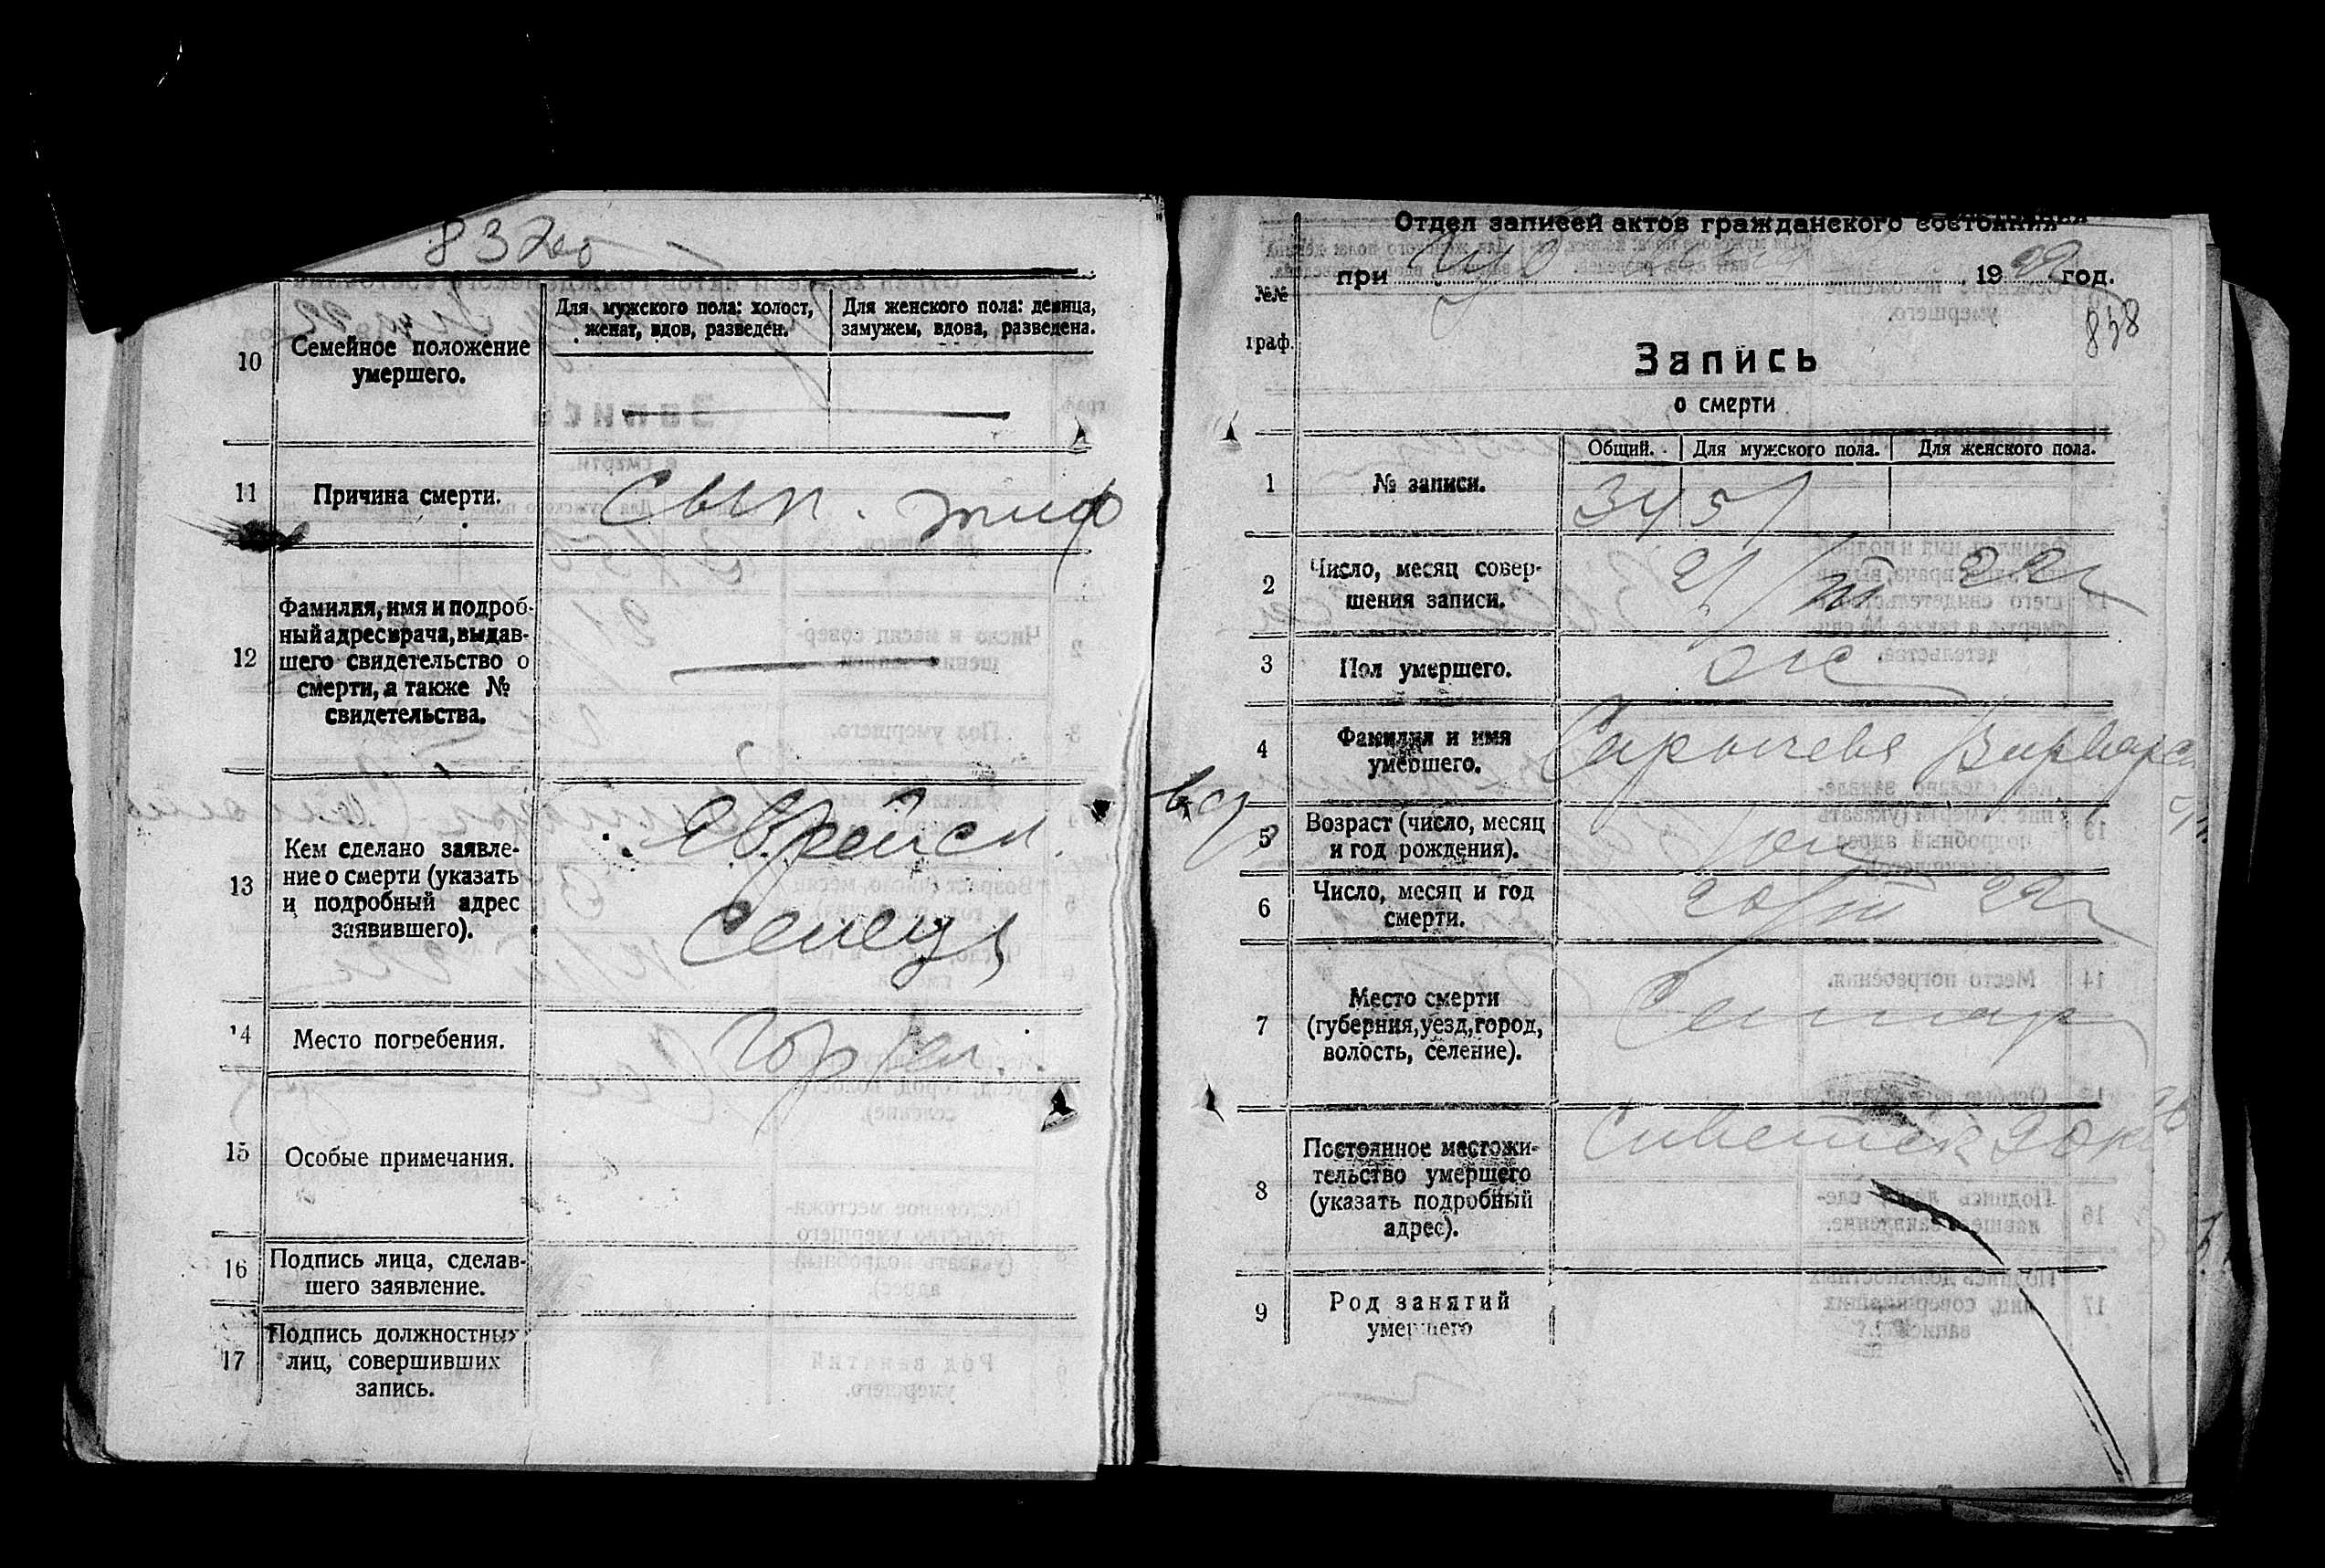 837об
10
Семейное положение
умершего.
Для мужского пола: холост,
женат, вдов, разведен.
Для женского пола: девица,
замужем, вдова, разведена.
11
Причина смерти.
Сып. тиф
12
Фамилия, имя и подроб-
ный адрес врача, выдав-
шего свидетельство о
смерти, а также №
свидетельства.
13
Кем сделано заявле-
ние о смерти (указать
и подробный адрес
заявившего).
Еврейск.
14
Место погребения.
15
Особые примечания.
16
Подпись лица, сделав-
шего заявление.
17
Подпись должностных
лиц, совершивших
запись.
Отдел записей актов гражданского состояния
при 1922 год.
838
№№
граф.
Запись
о смерти
Общий. Для мужского пола. Для женского пола.
1
№ записи.
3451
2
Число, месяц совер-
шения записи.
21/III 22г
3
Пол умершего.
ж
4
Фамилия и имя
умершего.
Сарычева Варвара
5
Возраст (число, месяц
и год рождения).
6
Число, месяц и год
смерти.
20/III 22г
7
Место смерти
(губерния, уезд, город,
волость, селение).
8
Постоянное местожи-
тельство умершего
(указать подробный
адрес).
9
Род занятий
умершего